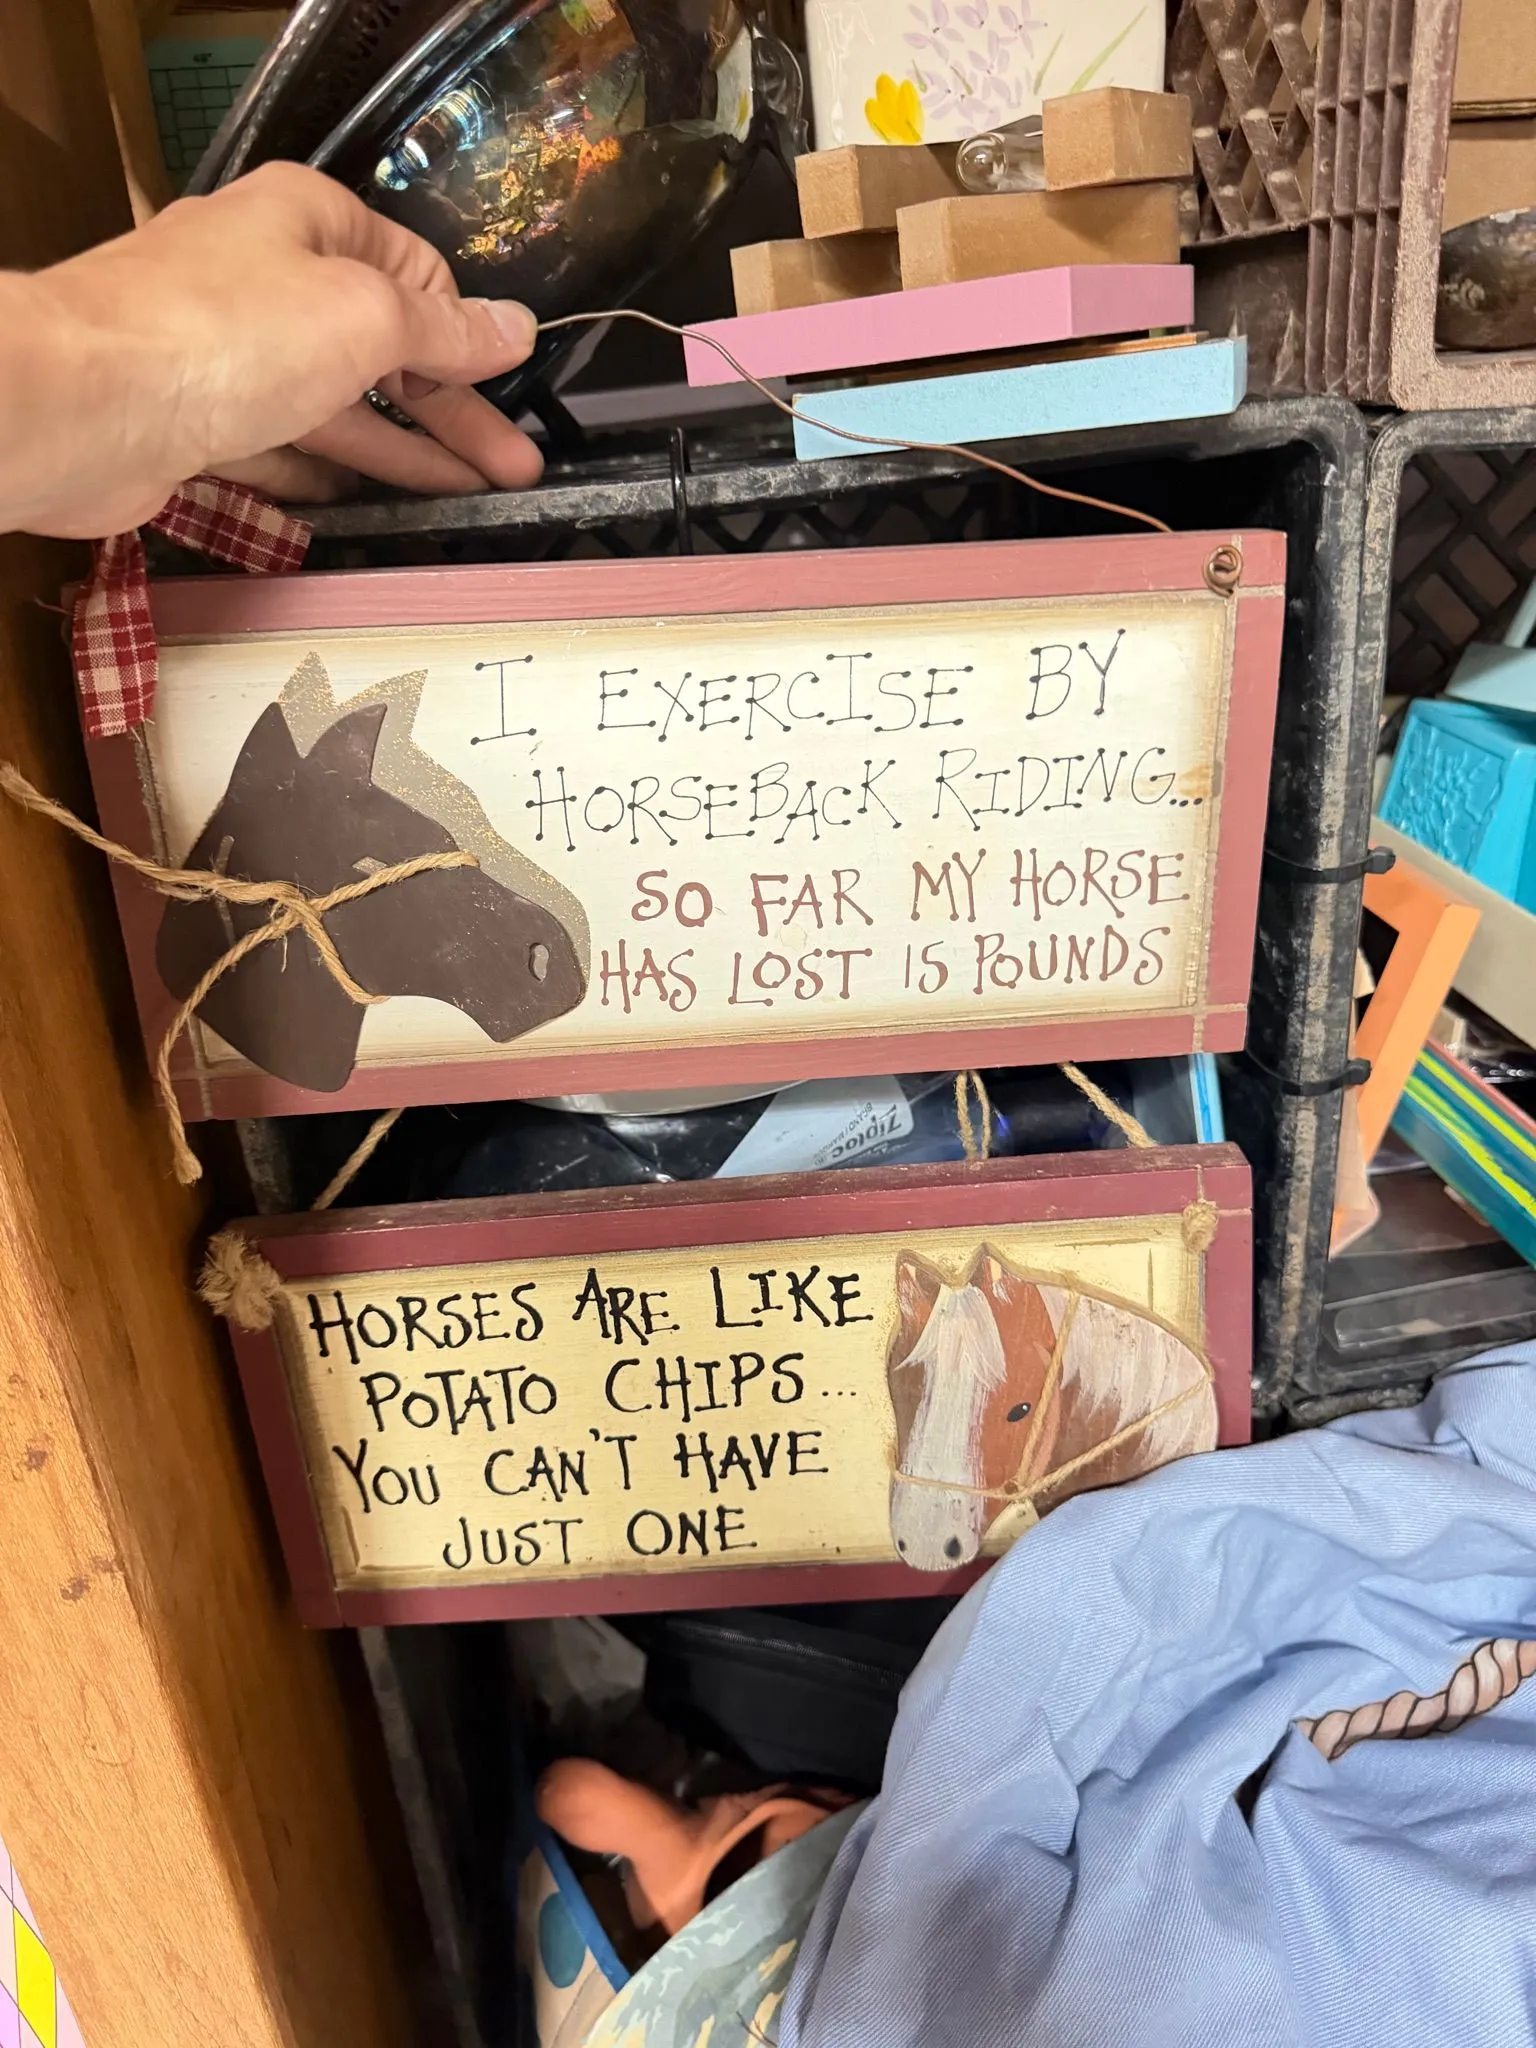 48"
I EXERCISE BY
HORSEBACK RIDING...
SO FAR MY HORSE
HAS LOST 15 POUNDS
Ziploc
HORSES ARE LIKE
POTATO CHIPS...
YOU CAN'T HAVE
JUST ONE